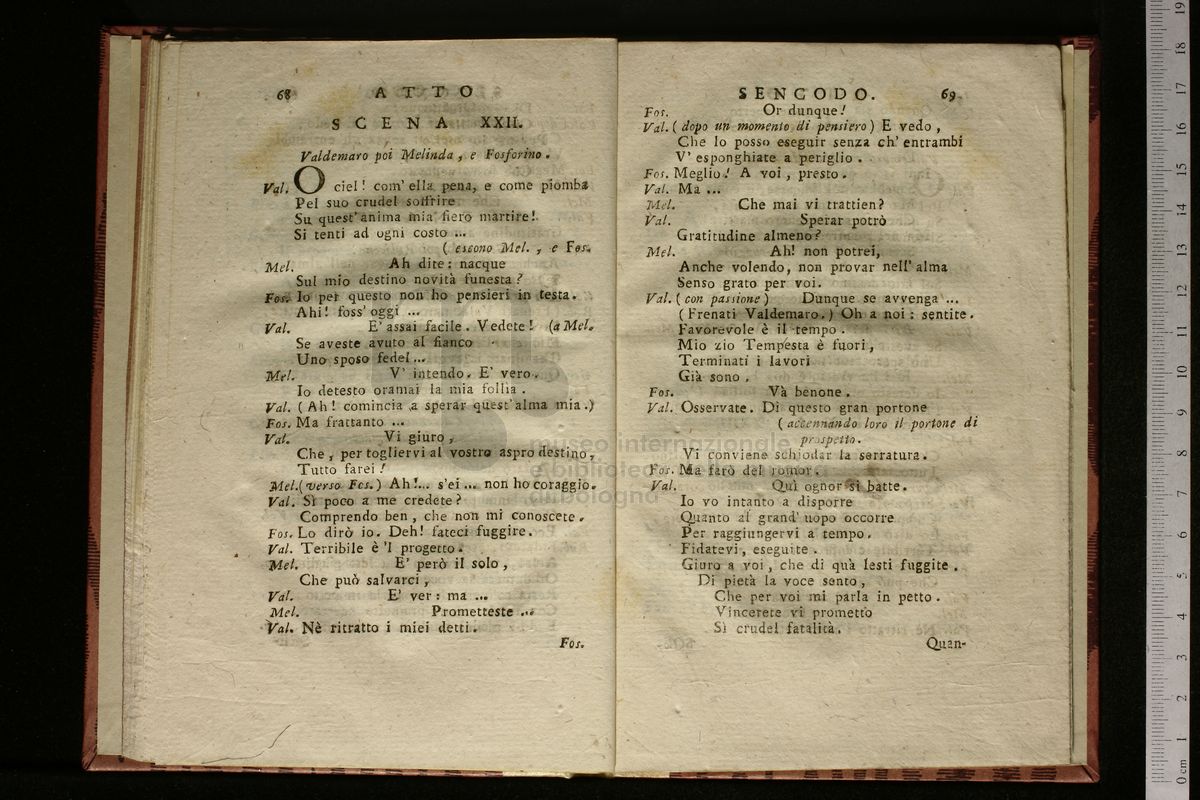 68 ATTO
SCENA XXII.
Valdemaro poi Melinda, e Fosforino.
Val. O ciel! com' ella pena, e come piomba
Pel suo crudel soffrire
Su quest' anima mia fiero martire!
Si tenti ad ogni costo ...
( escono Mel., e Fos.
Mel. Ah dite: nacque
Sul mio destino novità funesta?
Fos. Io per questo non ho pensieri in testa.
Ahi! foss' oggi ...
Val. E' assai facile. Vedete! (a Mel.
Se aveste avuto al fianco
Uno sposo fedel ...
Mel. V' intendo. E' vero.
Io detesto oramai la mia follia.
Val. (Ah! comincia a sperar quest' alma mia.)
Fos. Ma frattanto ...
Val. Vi giuro,
Che, per togliervi al vostro aspro destino,
Tutto farei!
Mel. (verso Fos.) Ah!... s'ei ... non ho coraggio.
Val. Sì poco a me credete?
Comprendo ben, che non mi conoscete.
Fos. Lo dirò io. Deh! fateci fuggire.
Val. Terribile è 'l progetto.
Mel. E' però il solo,
Che può salvarci,
Val. E' ver: ma ...
Mel. Prometteste ...
Val. Nè ritratto i miei detti.
Fos.
SENCODO. 69
Fos. Or dunque!
Val. (dopo un momento di pensiero) E vedo,
Che lo posso eseguir senza ch' entrambi
V' esponghiate a periglio.
Fos. Meglio! A voi, presto.
Val. Ma ...
Mel. Che mai vi trattien?
Val. Sperar potrò
Gratitudine almeno?
Mel. Ah! non potrei,
Anche volendo, non provar nell' alma
Senso grato per voi.
Val. (con passione) Dunque se avvenga ...
(Frenati Valdemaro.) Oh a noi: sentite.
Favorevole è il tempo.
Mio zio Tempesta è fuori,
Terminati i lavori
Già sono.
Fos. Và benone.
Val. Osservate. Di questo gran portone
(accennando loro il portone di
prospetto.
Vi conviene schiodar la serratura.
Fos. Ma farò del romor.
Val. Quì ognor si batte.
Io vo intanto a disporre
Quanto al grand' uopo occorre
Per raggiungervi a tempo.
Fidatevi, eseguite.
Giuro a voi, che di quà lesti fuggite.
Di pietà la voce sento,
Che per voi mi parla in petto.
Vincerete vi prometto
Sì crudel fatalità.
Quan-
museo internazionale
e biblioteca
di bologna